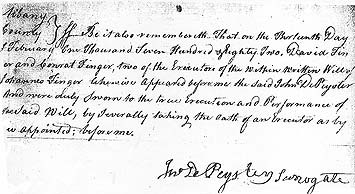 Albany
County } ss Be it also remembereth That on the Thirteenth Day
February One Thousand Seven Hundred & Eighty Two, David Fin
er and Conrat Finger, two of the Executors of the Within Written Will of
Johannes Finger likewise appeared before me the said John De Peyster
And were duly Sworn to the true Execution and Performance of
the Said Will, by Severally taking the Oath of an Executor as by
w appointed; before me.
Jno De Peyster Surrogate